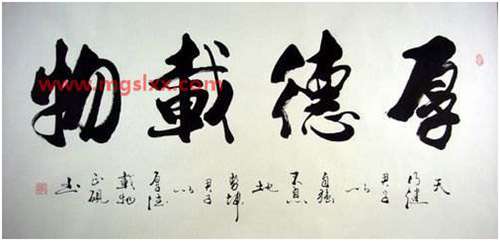 厚德載物
www.mgslxx.com
天行健君子以自强不息地势坤君子以厚德載物
书